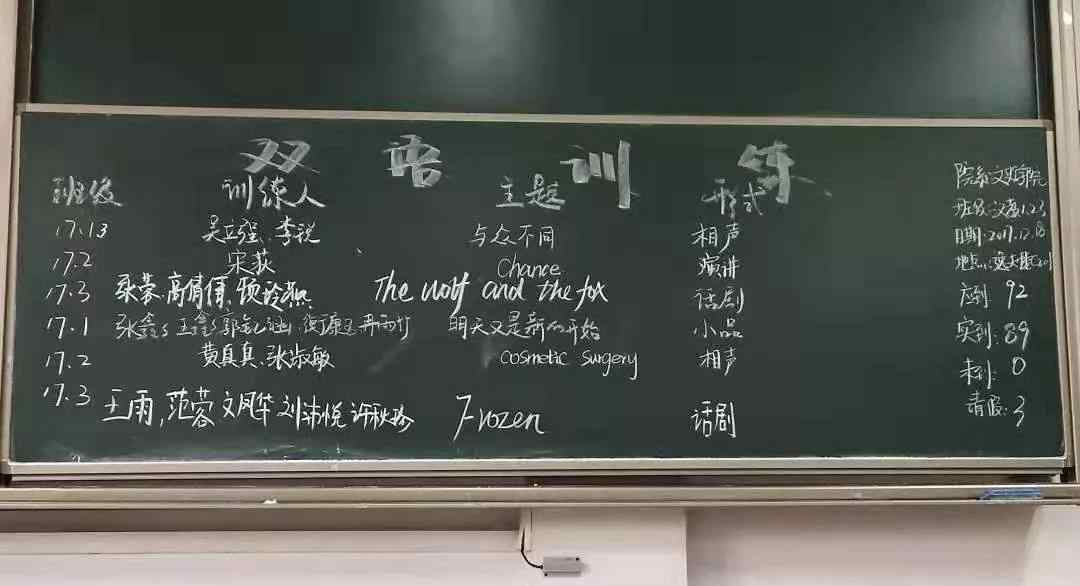 双语训练
班级 训练人 主题 形式
17.13 吴立强、李锐 与众不同 相声
17.2 宋荻 Chance 演讲
17.3 张蓉 The wolf and the fox 话剧
17.1 明天又是新的开始 小品
17.2 黄真真、张淑敏 cosmetic surgery 相声
17.3 王雨, 范蓉 文凤华 刘沛悦 许秋玲 Frozen 话剧
院系:文学院
日期:2017.12.18
地点:
应到: 92
实到: 89
未到: 0
请假: 3